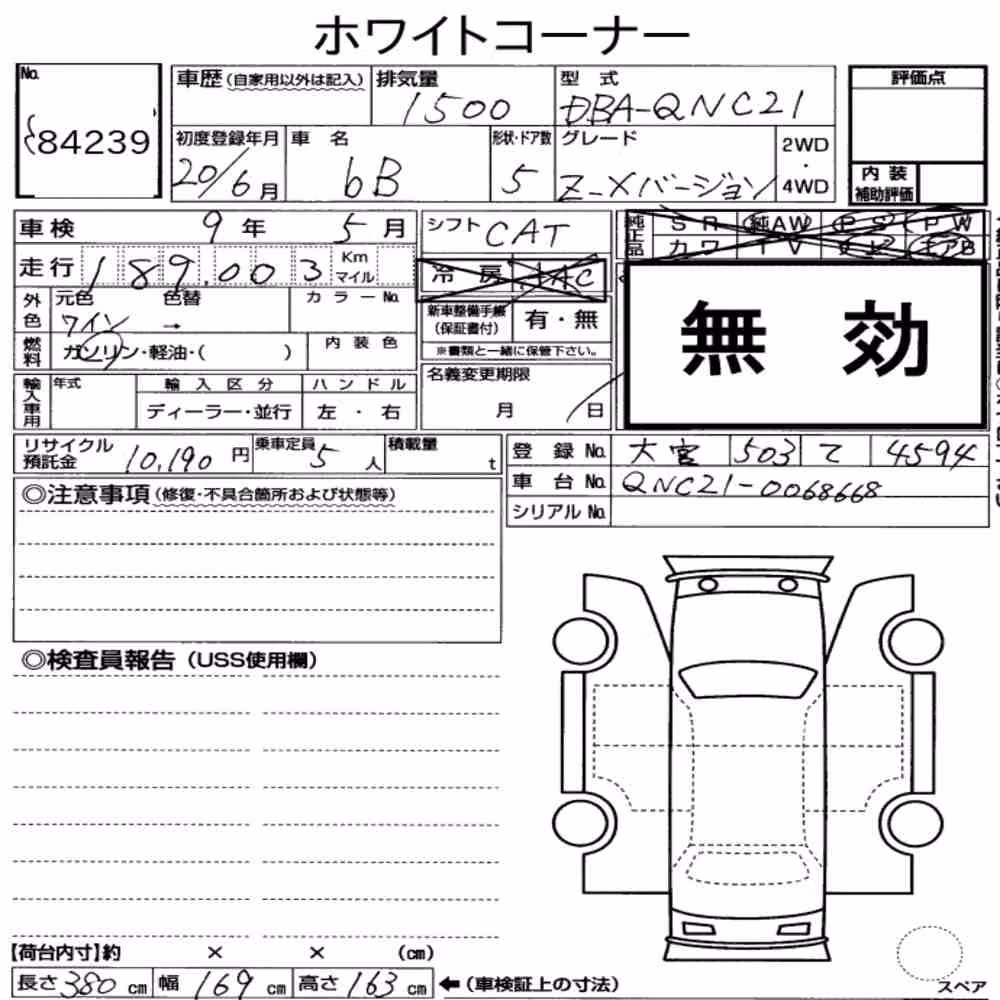 ホワイトコーナー
No. 84239
車歴(自家用以外は記入) 排気量 1500 型式 DBA-QNC21 評価点
初度登録年月 20/6月 車名 bB 形状・ドア数 5 グレード Z-Xバージョン 2WD・4WD 内装補助評価
車検 9年 5月 シフト CAT 純正品 SR 純AW PS PW
カワ TV ナビ エアB
走行 189,003 Km マイル 冷房 AC
外色 元色 ワイン 色替 → カラーNo. 新車整備手帳(保証書付) 有・無
無効
燃料 ガソリン・軽油・( ) 内装色 ※書類と一緒に保管下さい。
輸入車用 年式 輸入区分 ディーラー・並行 ハンドル 左・右 名義変更期限 月 日
リサイクル預託金 10,190円 乗車定員 5人 積載量 t 登録No. 大宮 503 て 4594
車台No. QNC21-0068668
シリアルNo.
◎注意事項(修復・不具合箇所および状態等)
◎検査員報告(USS使用欄)
【荷台内寸】約 × × (cm)
長さ 380 cm 幅 169 cm 高さ 163 cm ←(車検証上の寸法)
スペア